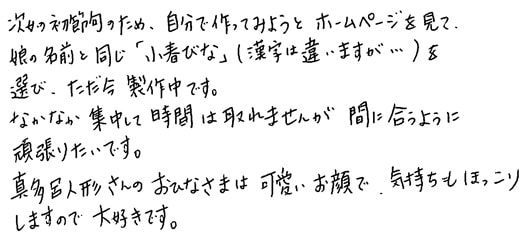 次女の初節句のため、自分で作ってみようと ホームページを見て、
娘の名前と同じ「小春びな」(漢字は違いますが…)を
選び、ただ今 製作中です。
なかなか 集中して 時間は取れませんが 間に合うように
頑張りたいです。
真多呂人形さんの おひなさまは 可愛いお顔で、気持ちもほっこり
しますので 大好きです。